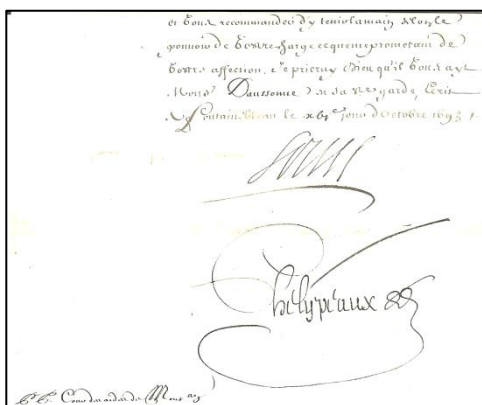 et vous recommander d'y tenir la main selon le
pouvoir de votre charge ce que me promettant de
votre affection. Je prieray Dieu qu'il vous ayt
Monsr Daussonne en sa garde, Ecrit
a Fontainebleau le jour d'Octobre 1693
Louis
Phelypeaux